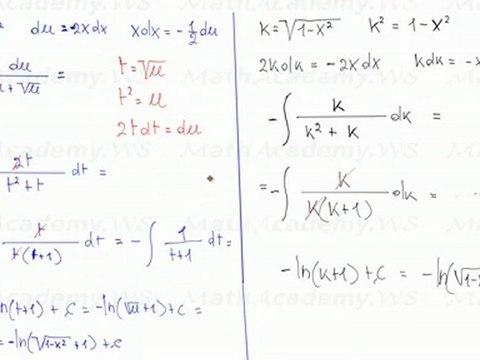 ² du = -2xdx xdx = -½du
du
u + √u =
t = √u
t² = u
2tdt = du
2t
t² + t dt =
t
t(t+1) dt = - ∫ 1
t+1 dt =
ln(t+1) + C = -ln(√u+1) + C =
= -ln(√1-x² + 1) + C
k = √1-x² k² = 1-x²
2kdk = -2xdx kdk = -x
- ∫ k
k² + k dk =
= - ∫ k
k(k+1) dk = ..
-ln(k+1) + C = -ln(√1-
Math.Academy.WS